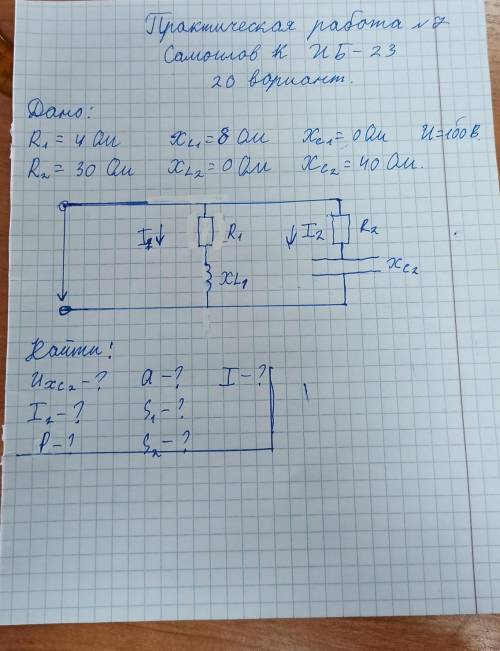 Практическая работа №7
Самоилов К ИБ-23
20 вариант.
Дано:
R1 = 4 Ом XL1 = 8 Ом XC1 = 0 Ом U = 100 В.
R2 = 30 Ом XL2 = 0 Ом XC2 = 40 Ом.
I1 R1 I2 R2
XL1 XC2
Найти:
UXC2 - ? Q - ? I - ?
I2 - ? S1 - ?
P - ? S2 - ?